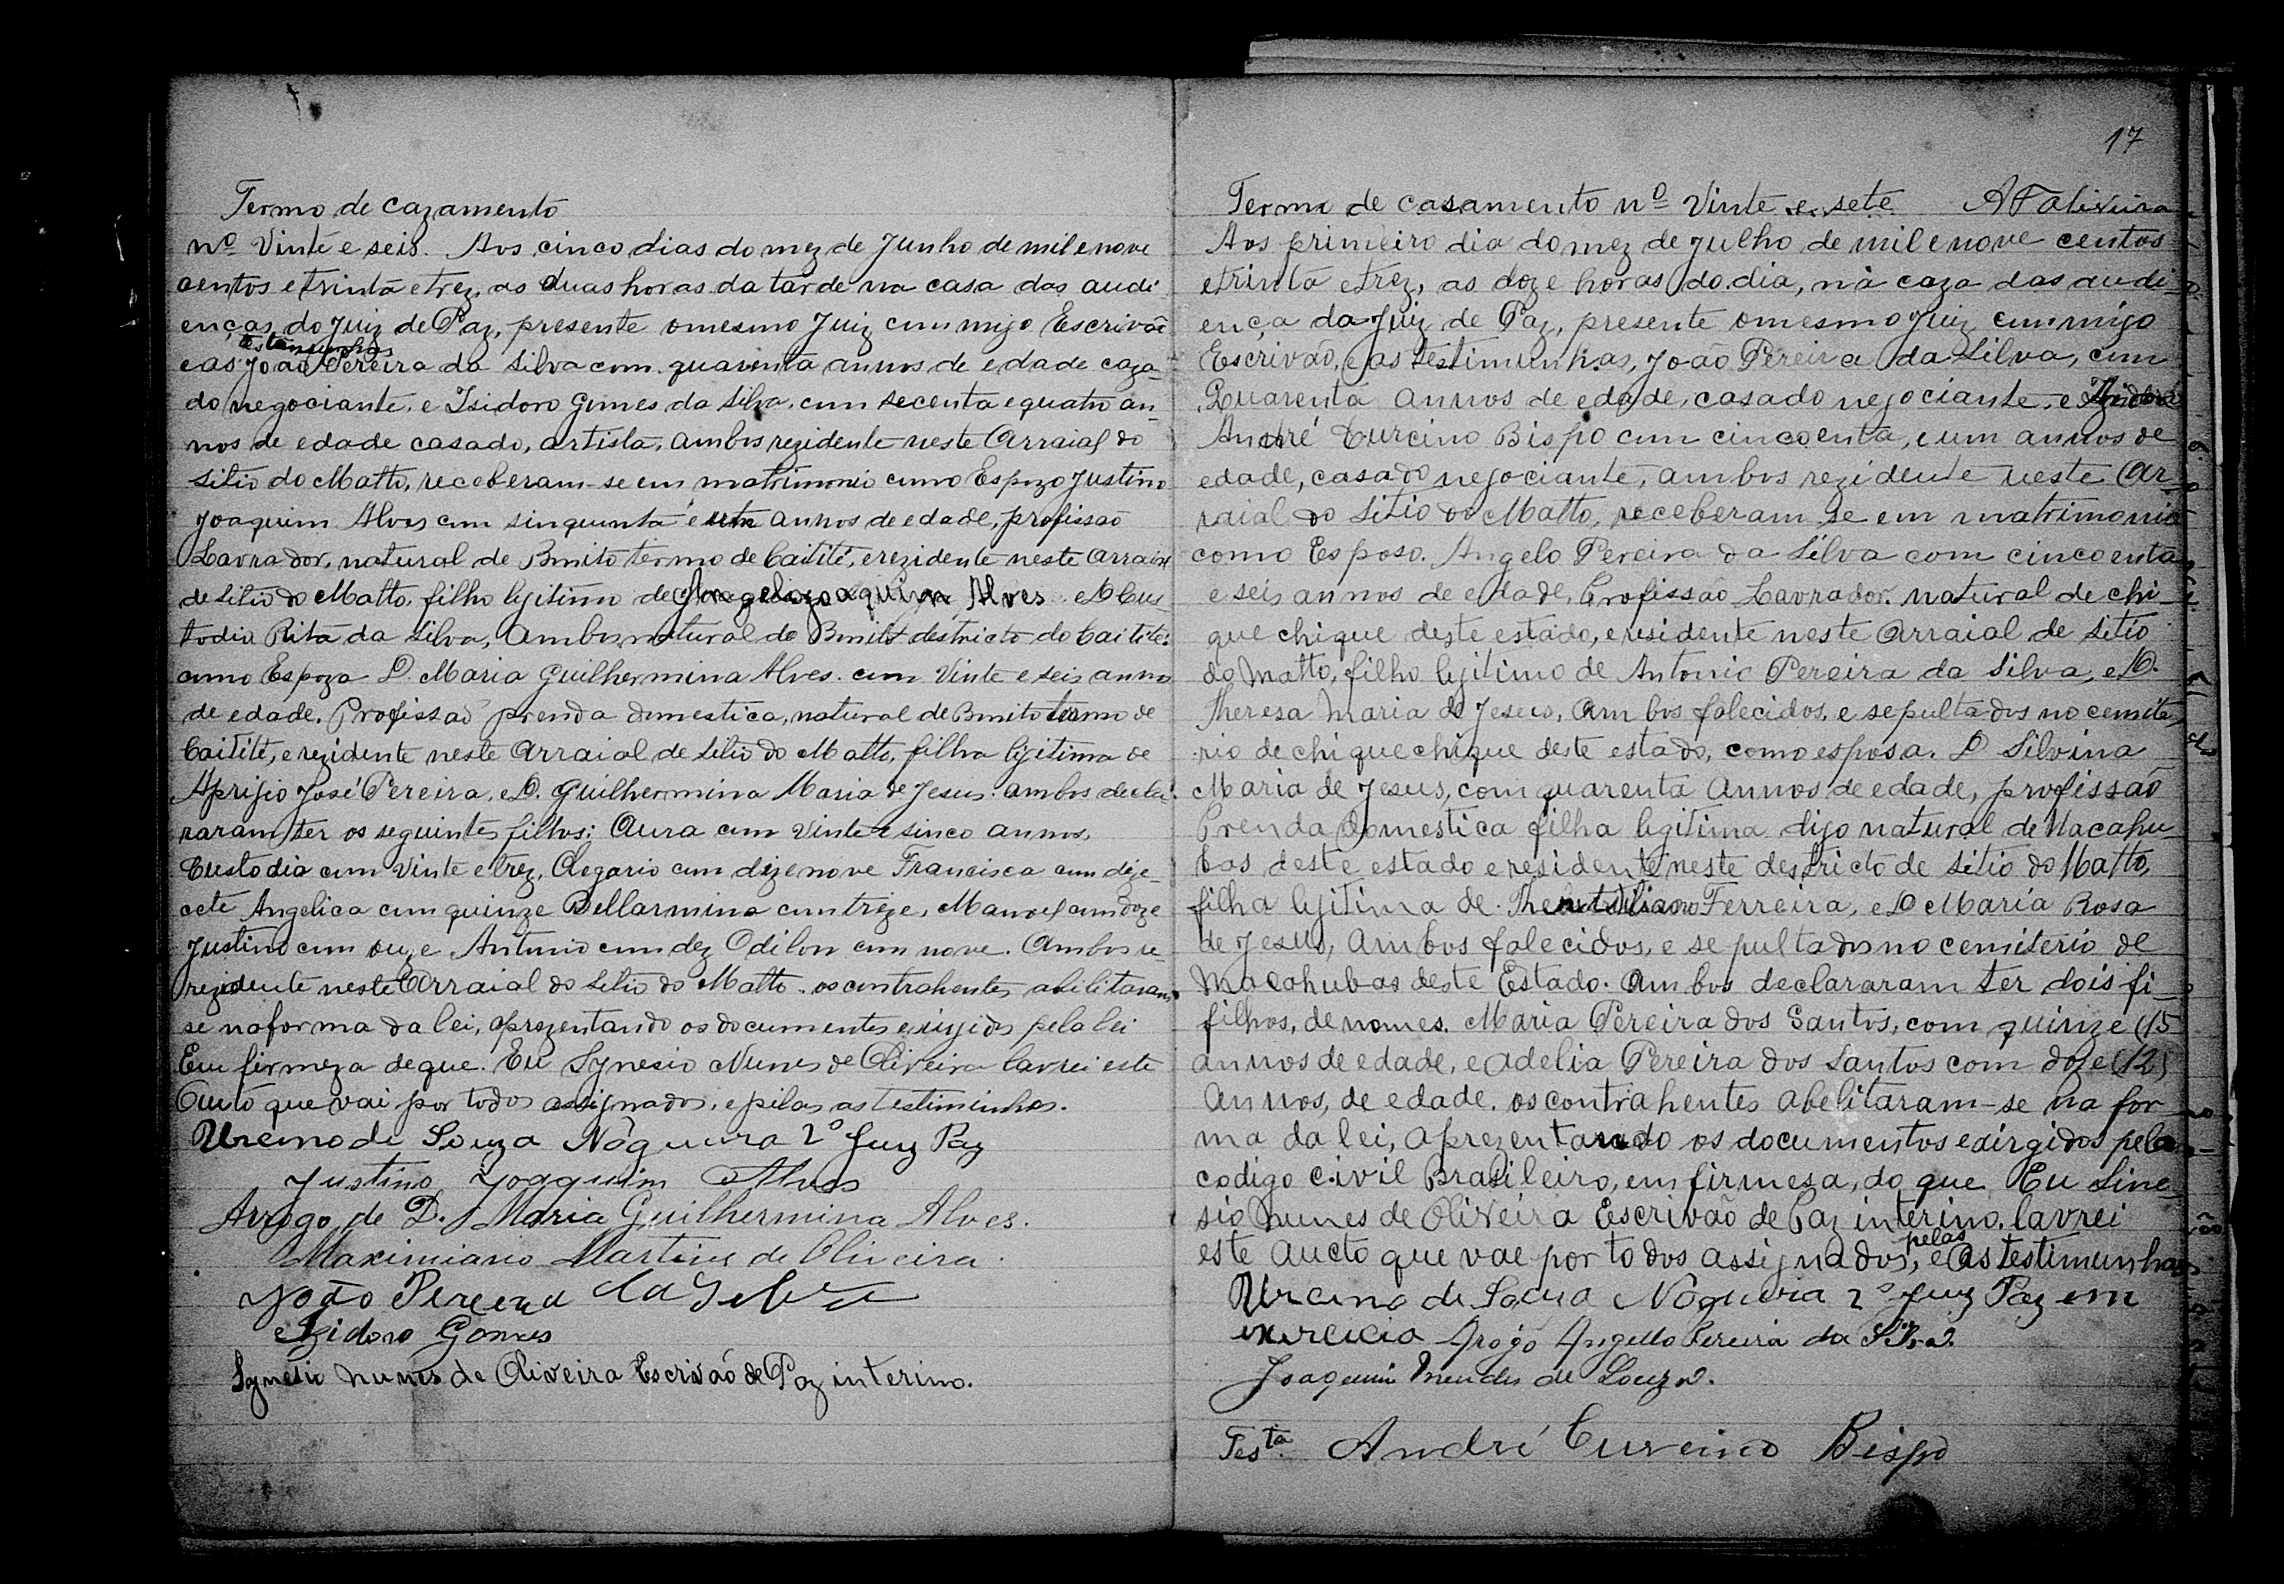 Termo de cazamento
nº Vinte e seis. Aos cinco dias do mez de Junho de mil e nove
centos e trinta e trez, as duas horas da tarde na casa das audi
enças do Juiz de Paz, presente o mesmo Juiz commigo Escrivão
testemunhas
e as João Pereira da Silva com quarenta annos de edade caza-
do negociante, e Isidoro Gomes da Silva, com secenta e quatro an-
nos de edade casado, artista, ambos rezidente neste Arraial do
Sitio do Matto, receberam-se em matrimonio como Espozo Justino
Joaquim Alves com sinquenta e um annos de edade, profissão
Lavrador, natural de Bonito termo de Caitité, e rezidente neste arraial
de Sitio do Matto, filho legitimo de Angelo Joaquim Alves e D Cus
todia Rita da Silva, Ambos natural de Bonito destricto de Caitité:
como Espoza D. Maria Guilhermina Alves com Vinte e seis annos
de edade, Profissão prenda domestica, natural de Bonito termo de
Caitité, e rezidente neste Arraial de Sitio do Matto, filha legitima de
Aprijio José Pereira, e D. Guilhermina Maria de Jesus. ambos decla-
raram ter os seguintes filhos: Aura com Vinte e sinco annos,
Custodia com Vinte e trez, Olegario com dizenove Francisca com dize-
cete Angelica com quinze Bellarmina com treze, Manoel com doze
Justino com onze Antonio com dez Odilon com nove. Ambos re-
rezidente neste Arraial do Sitio do Matto. os contrahentes abilitaram
se na forma da lei, aprezentando os documentos exigidos pela lei
Em firmeza de que. Eu Synesio Nunes de Oliveira lavrei este
Auto que vai por todos assignados, e pelas as testiminhas.
Urcino de Souza Nogueira 2º Juiz Paz
Justino Joaquim Alves
Arrogo de D. Maria Guilhermina Alves.
Maximiano Martins de Oliveira
João Pereira da Silva
Izidoro Gomes
Synesio Nunes de Oliveira Escrivão de Paz interino.
17
Termo de casamento nº Vinte e sete A F Oliveira
Aos primeiro dia do mez de Julho de mil e nove centos
e trinta e trez, as doze horas do dia, na caza das audi-
ença da Juiz de Paz, presente o mesmo Juiz commigo
Escrivão, e as testimunhas, João Pereira da Silva, com
Quarenta annos de edade, casado negociante, e
André Curcino Bispo com cincoenta, e um annos de
edade, casado negociante, ambos rezidente neste Ar-
raial do Sitio do Matto, receberam se em matrimonio
como Esposo. Angelo Pereira da Silva com cincoenta
e seis annos de edade, Profissão Lavrador, natural de chi-
que chique deste estado, e residente neste Arraial de Sitio
do Matto, filho legitimo de Antonio Pereira da Silva, e D.
Theresa Maria de Jesus, Ambos falecidos, e sepultados no cemite
rio de chique chique deste estado, como esposa. D Silvina
Maria de Jesus, com quarenta Annos de edade, profissão
Prenda Domestica filha legitima digo natural de Macahu-
bas deste estado e residente neste destricto de Sitio do Matto,
filha legitima de Ferreira, e D Maria Rosa
de Jesus, Ambos falecidos, e sepultados no cemiterio de
Macahubas deste Estado. Ambos declararam ter dois fi-
filhos, de nomes. Maria Pereira dos Santos, com quinze (15
annos de edade, e Adelia Pereira dos Santos com doze (12)
Annos, de edade. os contrahentes abelitaram-se na for-
ma da lei, aprezentando os documentos exirgidos pelo
codigo civil Brasileiro, em firmesa, do que, Eu Sine-
sio Nunes de Oliveira Escrivão de Paz interino, lavrei
pelas
este Aucto que vae por todos assignados, e as testimunhas
Urcino de Souza Nogueira 2º Juiz Paz em
exercicio Arogo Angello Pereira da Silva
Joaquim Mendes de Souza.
Testa. André Curcino Bispo